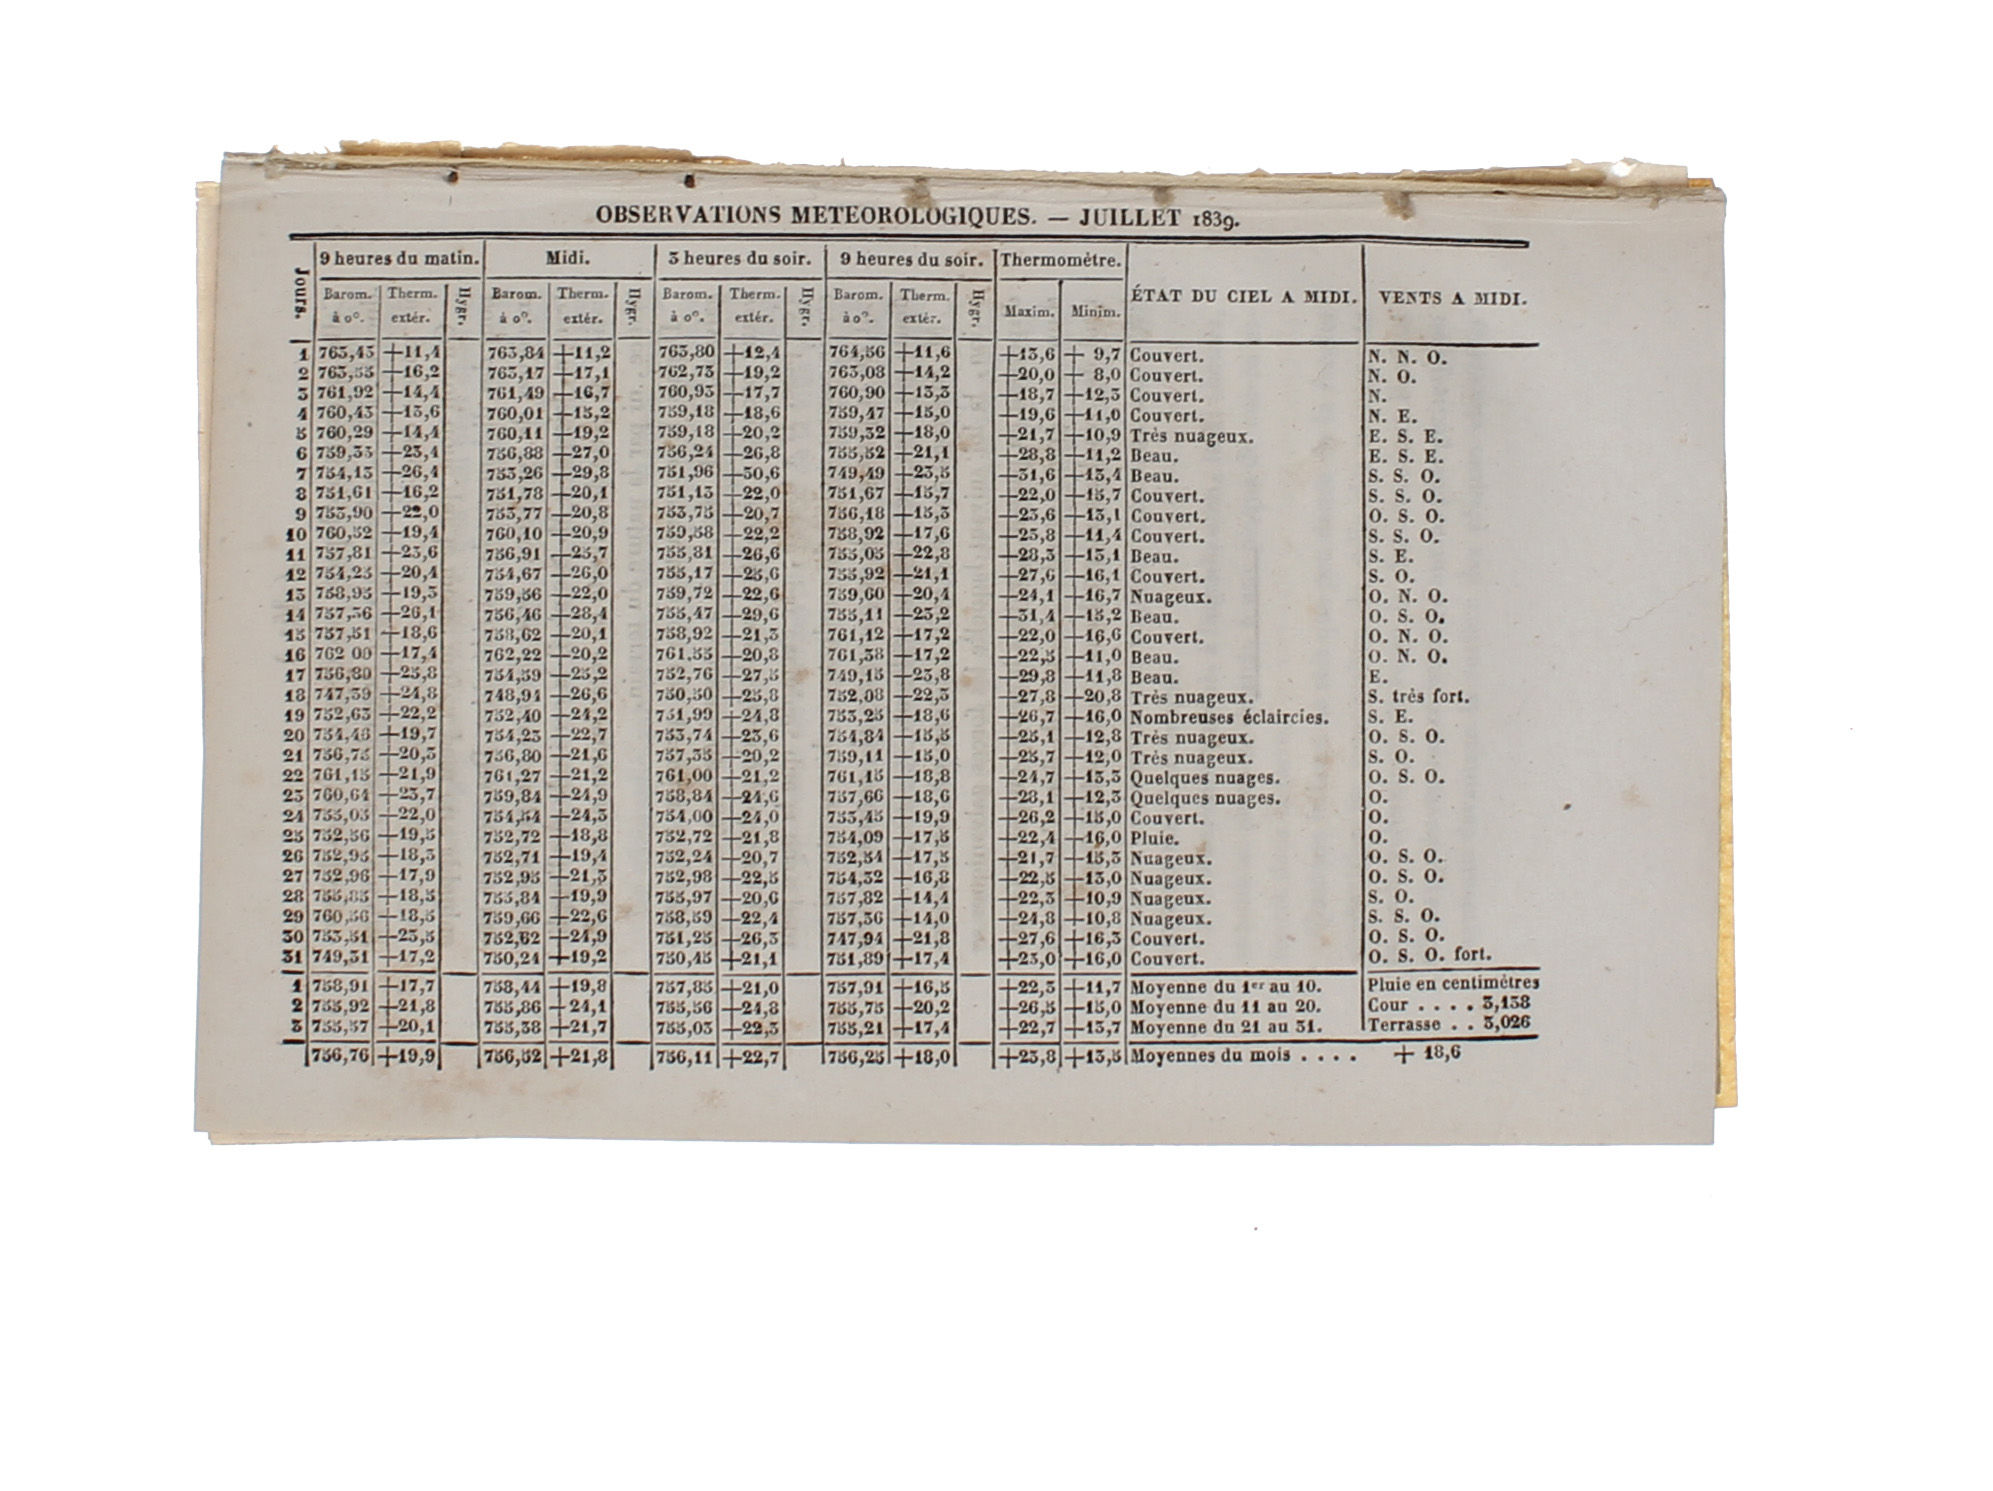 OBSERVATIONS METEOROLOGIQUES. — JUILLET 1839.
Jours. 9 heures du matin. Midi. 3 heures du soir. 9 heures du soir. Thermomètre. ÉTAT DU CIEL A MIDI. VENTS A MIDI.
Barom. à 0°. Therm. extér. Hygr. Barom. à 0°. Therm. extér. Hygr. Barom. à 0°. Therm. extér. Hygr. Barom. à 0°. Therm. extér. Hygr. Maxim. Minim.
1 763,43 +11,4 763,84 +11,2 763,80 +12,4 764,56 +11,6 +13,6 + 9,7 Couvert. N. N. O.
2 763,55 +16,2 763,17 +17,1 762,73 +19,2 763,08 +14,2 +20,0 + 8,0 Couvert. N. O.
3 761,92 +14,4 761,49 +16,7 760,93 +17,7 760,90 +13,3 +18,7 +12,3 Couvert. N.
4 760,43 +13,6 760,01 +15,2 759,18 +18,6 759,47 +15,0 +19,6 +11,0 Couvert. N. E.
5 760,29 +14,4 760,11 +19,2 759,18 +20,2 759,32 +18,0 +21,7 +10,9 Très nuageux. E. S. E.
6 759,33 +23,4 756,88 +27,0 756,24 +26,8 755,52 +21,1 +28,8 +11,2 Beau. E. S. E.
7 754,13 +26,4 753,26 +29,8 751,96 +30,6 749,49 +23,5 +31,6 +13,4 Beau. S. S. O.
8 751,61 +16,2 751,78 +20,1 751,13 +22,0 751,67 +15,7 +22,0 +15,7 Couvert. S. S. O.
9 753,90 +22,0 753,77 +20,8 753,75 +20,7 756,18 +15,3 +23,6 +13,1 Couvert. O. S. O.
10 760,52 +19,4 760,10 +20,9 759,58 +22,2 758,92 +17,6 +23,8 +11,4 Couvert. S. S. O.
11 757,81 +23,6 756,91 +25,7 755,81 +26,6 755,05 +22,8 +28,3 +13,1 Beau. S. E.
12 754,25 +20,4 754,67 +26,0 755,17 +25,6 755,92 +21,1 +27,6 +16,1 Couvert. S. O.
13 758,95 +19,3 759,56 +22,0 759,72 +22,6 759,60 +20,4 +24,1 +16,7 Nuageux. O. N. O.
14 757,36 +26,1 756,46 +28,4 755,47 +29,6 755,11 +23,2 +31,4 +15,2 Beau. O. S. O.
15 757,51 +18,6 758,62 +20,1 758,92 +21,3 761,12 +17,2 +22,0 +16,6 Couvert. O. N. O.
16 762 00 +17,4 762,22 +20,2 761,55 +20,8 761,38 +17,2 +22,5 +11,0 Beau. O. N. O.
17 756,80 +25,8 754,59 +25,2 752,76 +27,5 749,15 +23,8 +29,8 +11,8 Beau. E.
18 747,39 +24,8 748,94 +26,6 750,50 +25,8 752,08 +22,3 +27,8 +20,8 Très nuageux. S. très fort.
19 752,63 +22,2 752,40 +24,2 751,99 +24,8 753,25 +18,6 +26,7 +16,0 Nombreuses éclaircies. S. E.
20 754,48 +19,7 754,23 +22,7 753,74 +23,6 754,84 +15,5 +25,1 +12,8 Très nuageux. O. S. O.
21 756,75 +20,3 756,80 +21,6 757,35 +20,2 759,11 +15,0 +25,7 +12,0 Très nuageux. S. O.
22 761,15 +21,9 761,27 +21,2 761,00 +21,2 761,15 +18,8 +24,7 +13,3 Quelques nuages. O. S. O.
23 760,64 +23,7 759,84 +24,9 758,84 +24,6 757,66 +18,6 +28,1 +12,3 Quelques nuages. O.
24 755,03 +22,0 754,54 +24,3 754,00 +24,0 753,45 +19,9 +26,2 +15,0 Couvert. O.
25 752,56 +19,5 752,72 +18,8 752,72 +21,8 754,09 +17,5 +22,4 +16,0 Pluie. O.
26 752,95 +18,3 752,71 +19,4 752,24 +20,7 752,54 +17,5 +21,7 +15,3 Nuageux. O. S. O.
27 752,96 +17,9 752,95 +21,3 752,98 +22,5 754,32 +16,8 +22,5 +13,0 Nuageux. O. S. O.
28 755,85 +18,5 755,84 +19,9 755,97 +20,6 757,82 +14,4 +22,3 +10,9 Nuageux. S. O.
29 760,56 +18,5 759,66 +22,6 758,59 +22,4 757,36 +14,0 +24,8 +10,8 Nuageux. S. S. O.
30 753,51 +23,5 752,62 +24,9 751,25 +26,3 747,94 +21,8 +27,6 +16,3 Couvert. O. S. O.
31 749,31 +17,2 750,24 +19,2 750,45 +21,1 751,89 +17,4 +23,0 +16,0 Couvert. O. S. O. fort.
1 758,91 +17,7 758,44 +19,8 757,85 +21,0 757,91 +16,5 +22,3 +11,7 Moyenne du 1er au 10. Pluie en centimètres
2 755,92 +21,8 755,86 +24,1 755,56 +24,8 755,75 +20,2 +26,5 +15,0 Moyenne du 11 au 20. Cour . . . . 3,138
3 755,57 +20,1 755,38 +21,7 755,03 +22,3 755,21 +17,4 +22,7 +13,7 Moyenne du 21 au 31. Terrasse . . 3,026
756,76 +19,9 756,52 +21,8 756,11 +22,7 756,25 +18,0 +23,8 +13,5 Moyennes du mois . . . . + 18,6